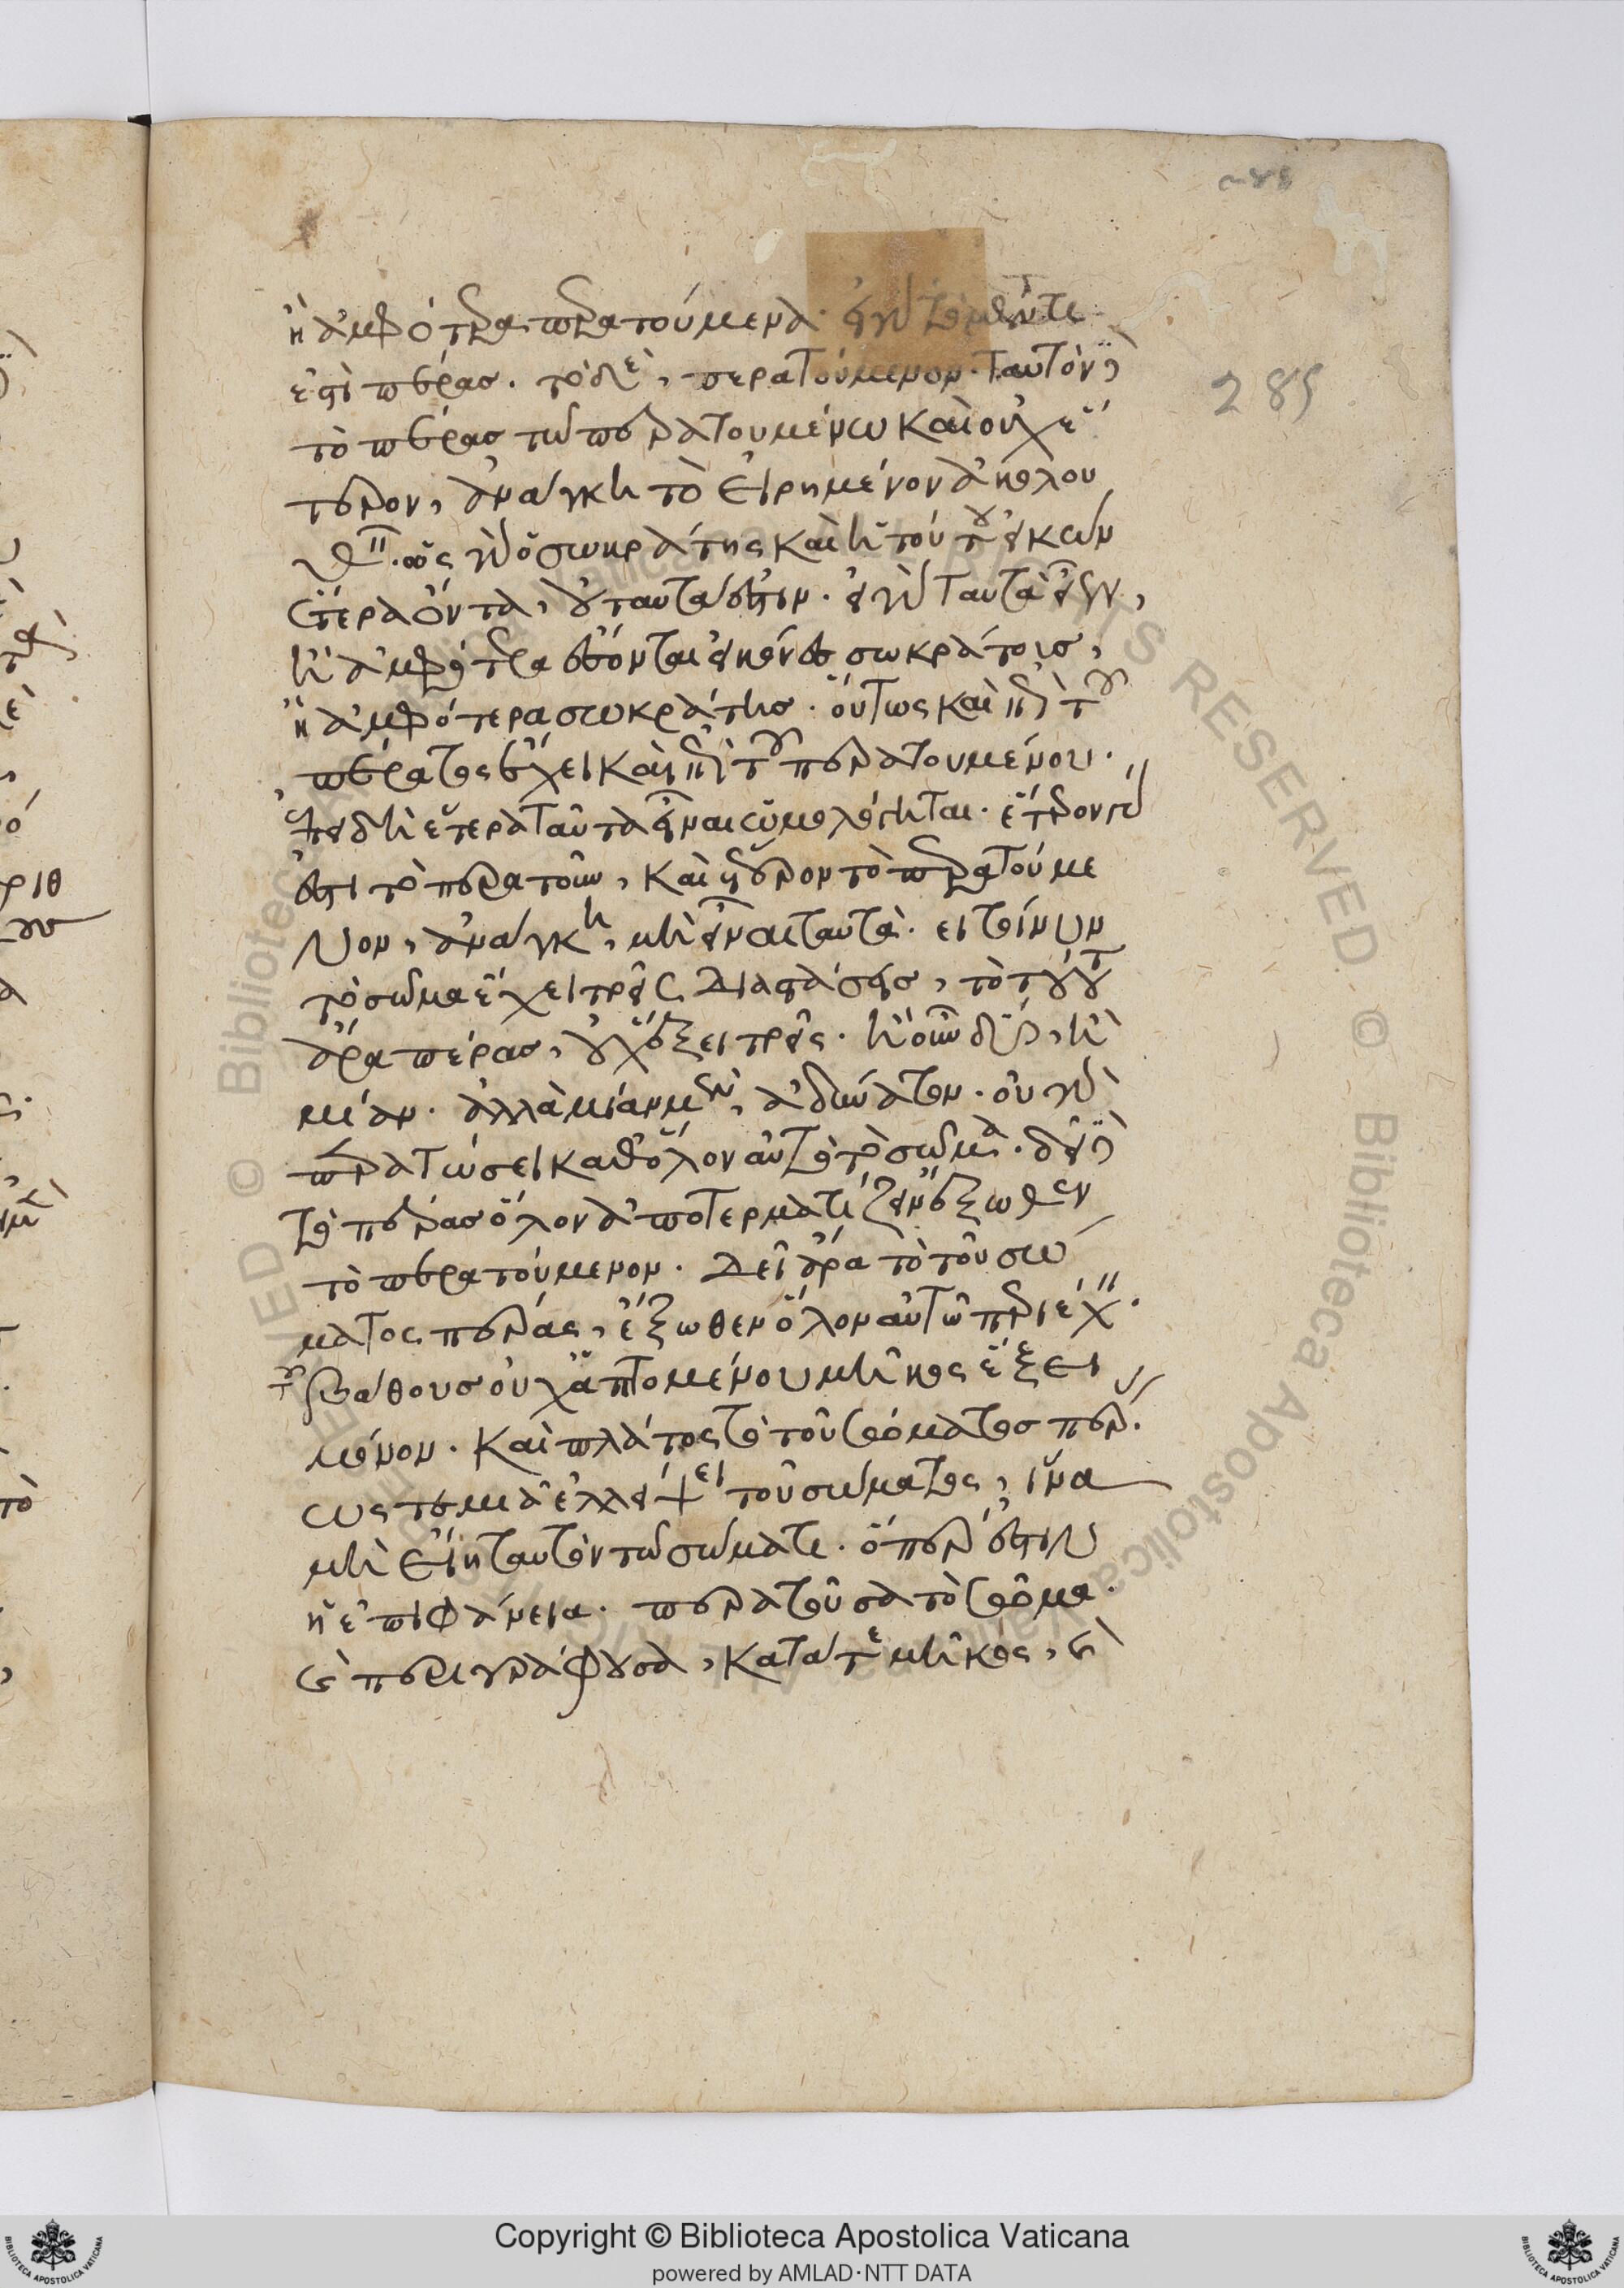 ἢ ἀμφότερα περατούμενα· εἰ γὰρ τὸ μέν τι
ἐστὶ πέρας. τὸ δὲ, περατούμενον· ταὐτόν
τὸ πέρας τῶ περατουμένω καὶ οὐχ ἕ
τερον, ἀνάγκη τὸ εἰρημένον ἀκολου
ὡς γὰρ ὁ σωκράτης καὶ ἡ τούτου εἰκὼν
ἕτερα ὄντα, οὐ ταυτά ἐστιν. εἰ γὰρ ταυτὰ
ἢ ἀμφότερα ἔσονται εἰκόνες σωκράτους,
ἢ ἀμφότερα σωκράτης. οὕτως καὶ ἐπὶ τοῦ
πέρατος ἔχει καὶ ἐπὶ τοῦ περατουμένου.
ἐπειδὴ ἕτερα ταῦτα εἶναι ὡμολόγηται. ἕτερον γάρ
ἐστι τὸ περατοῦν, καὶ ἕτερον τὸ περατούμε
νον, ἀνάγκη, μὴ εἶναι ταυτά. εἰ τοίνυν
τὸ σῶμα ἔχει τρεῖς διαστάσεις, τὸ τούτου
ἄρα πέρας, οὐχ ἕξει τρεῖς. ἢ οὖν δύο, ἢ
μίαν. ἀλλὰ μίαν μὲν, ἀδύνατον. οὐ γὰρ
περατώσει καθόλον αὐτὸ τὸ σῶμα. δεῖ
τὸ πέρας ὅλον ἀποτερματίζειν ἔξωθεν
τὸ περατούμενον. Δεῖ ἄρα τὸ τοῦ σώ
ματος πέρας, ἔξωθεν ὅλον αὐτῶ περιέχ
τοῦ βάθους οὐχ ἁπτομένου μῆκος ἕξει
μόνον. καὶ πλάτος τὸ τοῦ σώματος πέρ
ὥστε μιᾶ ἐλλείψει τοῦ σώματος, ἵνα
μὴ εἴη ταυτὸν τῶ σώματι. ὅπερ ἐστὶν
ἡ ἐπιφάνεια. περατοῦσα τὸ σῶμα.
καὶ περιγράφουσα, κατά τε μῆκος, καὶ
285
Copyright © Biblioteca Apostolica Vaticana
powered by AMLAD·NTT DATA